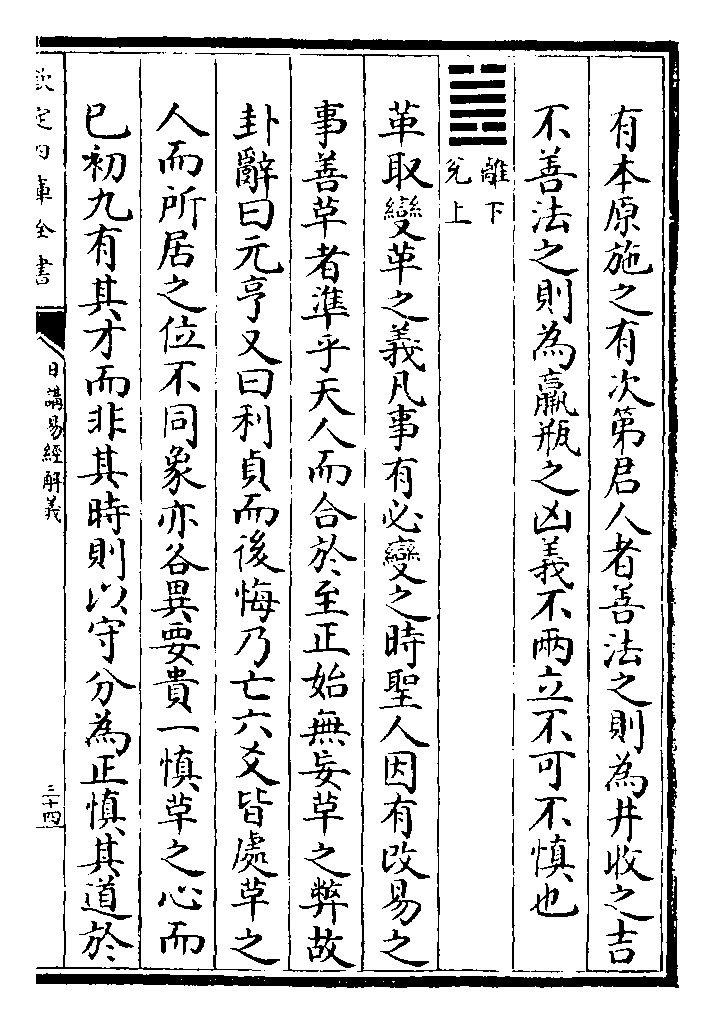 有本原施之有次第君人者善法之則為井收之吉
不善法之則為羸瓶之凶義不兩立不可不慎也
離下
兊上
革取變革之義凡事有必變之時聖人因有改易之
事善革者準乎天人而合於至正始無妄革之弊故
卦辭曰元亨又曰利貞而後悔乃亡六爻皆處革之
人而所居之位不同象亦各異要貴一慎革之心而
已初九有其才而非其時則以守分為正慎其道於
欽定四庫全書
日講易經解義
三十四